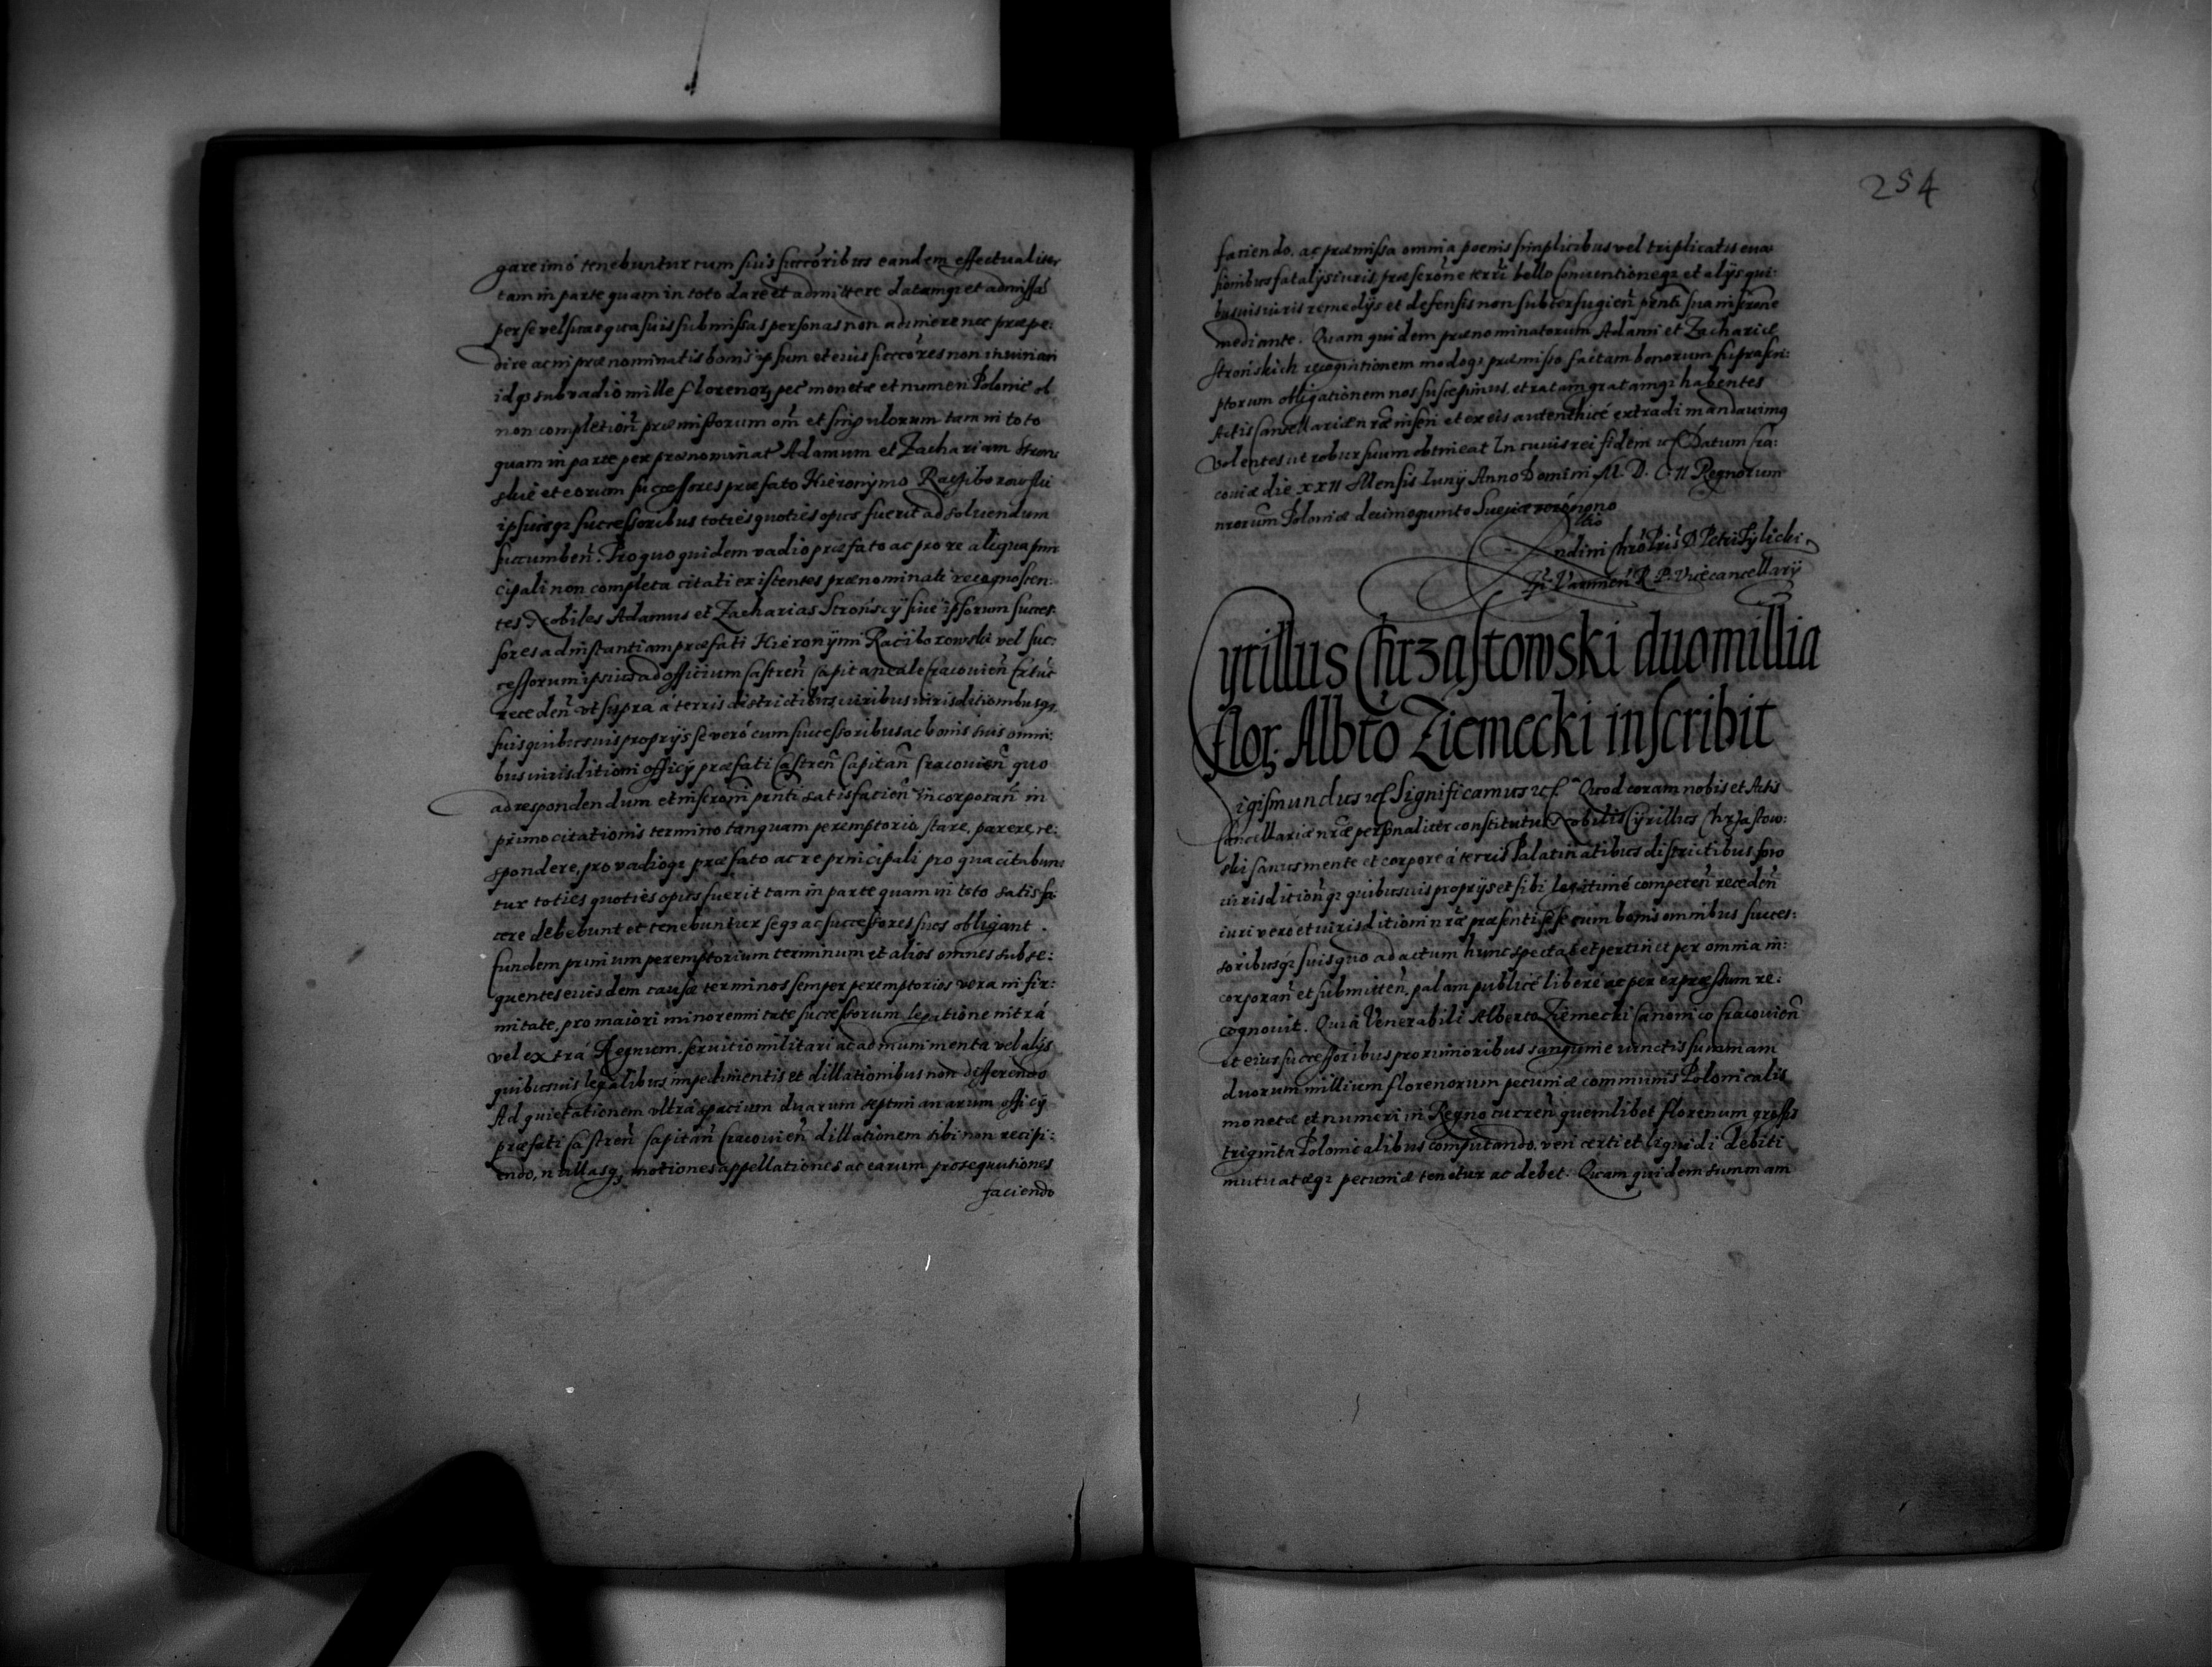 gare imó tenebuntur cum suis succōribus eandem effectualiter
tam in parte quam in toto dare et admittere datamqꝫ et admissā
per se vel suas qua suis submissas personas non adimere nec præpe:
dire ac in præ nominatis bonis ipsum et eius succōres non iniuriari
idqꝫ sub vadio mille florenorꝫ pec̃ monetæ et numeri Polonic̃ ol
non completioñ præmissorum om̃ et singulorum tam in toto
quam in parte per prænominat̃ Adamum et Zachariam Stron:
skie et eorum successores præfato Hieronymo Raciborowski
ipsiusqꝫ successoribus toties quoties opus fuerit ad soluendum
succumbeñ. Pro quo quidem vadio præfato ac pro re aliqua prin
cipali non completa citati existentes prænominati recognoscen:
tes Nobiles Adamus et Zacharias Stronscÿ siue ipsorum succes:
sores ad instantiam præfati Hieronÿmi Raciborowski vel suc:
cessorum ipsius ad officium castreñ capitaneale Cracouieñ
recedeñ vt supra á terris districtibus iuribus iurisditionibusqꝫ
suis quibusuis proprÿs se veró cum successoribus ac bonis suis omni:
bus iurisditioni officÿ præfati Castreñ Capitañ Cracouieñ quo
ad respondendum et inscrōni pñti satisfacieñ incorporañ in
primo citationis termino tanquam peremptorio stare, parere, re:
spondere, pro vadioqꝫ præfato ac re principali pro qua citabun:
tur toties quoties opus fuerit tam in parte quam in toto satisfa:
cere debebunt et tenebuntur seqꝫ ac successores suos obligant.
Eundem primum peremptorium terminum et alios omnes subse:
quentes eiusdem causæ terminos semper peremptorios vera infir:
mitate, pro maiori minorennitate successorum legatione intrá
vel extrá Regnum, seruitio militari ac ad munimenta vel alÿs
quibusuis legalibus impedimentis et dillationibus non differendo
Ad quietationem vltrá spacium duarum septimanarum officÿ
præfati Castreñ Capitañ Cracouieñ dillationem sibi non recipi:
endo, nullasqꝫ motiones appellationes ac earum prosequutiones
faciendo
254
faciendo, ac præmissa omnia poenis simplicibus vel triplicatis eua:
sionibus fatalÿs iuris præscrōne terrī bello conuentioneqꝫ et alÿs qui:
busuis iuris remedÿs et defensis non subterfugieñ pñti sua inscrōne
mediante. Quam quidem prænominatorum Adami et Zachariæ
Strońskich recognitionem modoqꝫ præmisso factam bonorum suprascri:
ptorum obligationem nos suscepimus, et ratam gratamqꝫ habentes
Actis Cancellariæ nrǣ inseri et ex eis autenthicé extradi mandauimꝰ
volentes ut robur suum obtineat In cuius rei fidem etc Datum Cra:
couiæ die XXII Mensis Iunÿ Anno Domini M. D. C. II Regnorum
nrorum Poloniæ decimoquinto Sueciæ veró nono
ndini Petri Tylicki
Varmieñ R P. Vicecancellarÿ
Cyrillus Chrząstowski duo millia
flor: Albtõ Ziemecki inscribit
Sigismundus etc Significamus etc Quod coram nobis et Actis
Cancellariæ nrǣ personaliter constitutus Nobilis Cÿrillus Chrząstow:
ski sanus mente et corpore á terris Palatinatibus districtibus, foro
iurisditionqꝫ quibusuis proprÿs et sibi legitimé competeñ recedeñ
iuri vero et iurisditioni nrǣ præsenti sese cum bonis omnibus succes:
soribusqꝫ suis quo ad actum hunc spectat et pertinet per omnia in:
corporañ et submitteñ, palam publicé liberé ac per expræssum re:
cognouit. Quia Venerabili Alberto Ziemecki Canonico Cracouieñ
et eius successoribus proximioribus sanguine iunctis summam
duorum millium florenorum pecuniæ communis Polonicalis
monetæ et numeri in Regno curreñ quemlibet florenum grossis
triginta Polonicalibus computando, veri certi et liquidi debiti
mutuatæqꝫ pecuniæ tenetur ac debet. Quam quidem summam